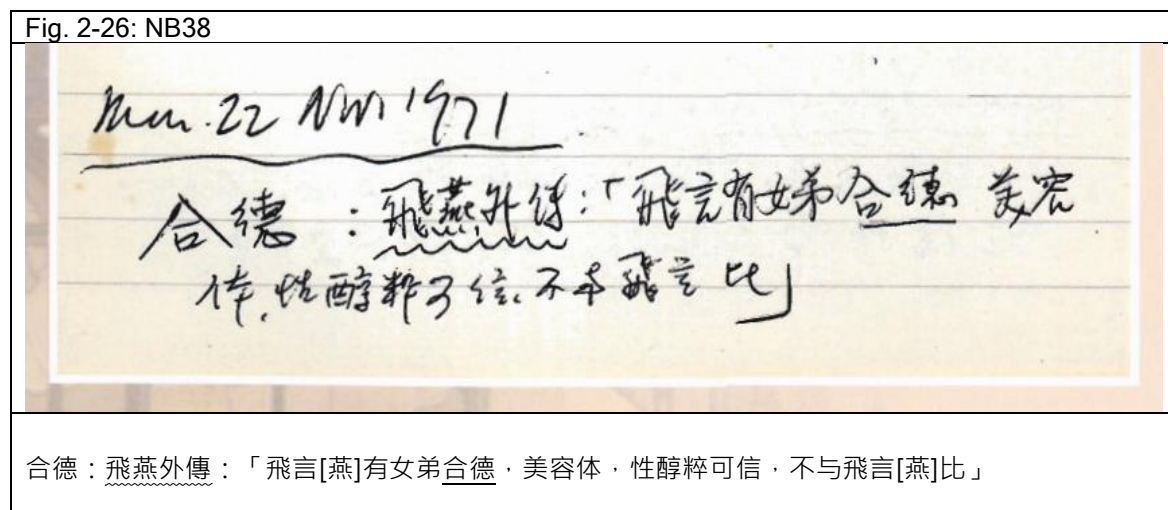 Fig. 2-26: NB38
Mon. 22 Nov 1971
合德：飛燕外傳：「飛言有女弟合德 美容
体，性醇粹可信，不与飛言比」
合德：飛燕外傳：「飛言[燕]有女弟合德，美容体，性醇粹可信，不与飛言[燕]比」